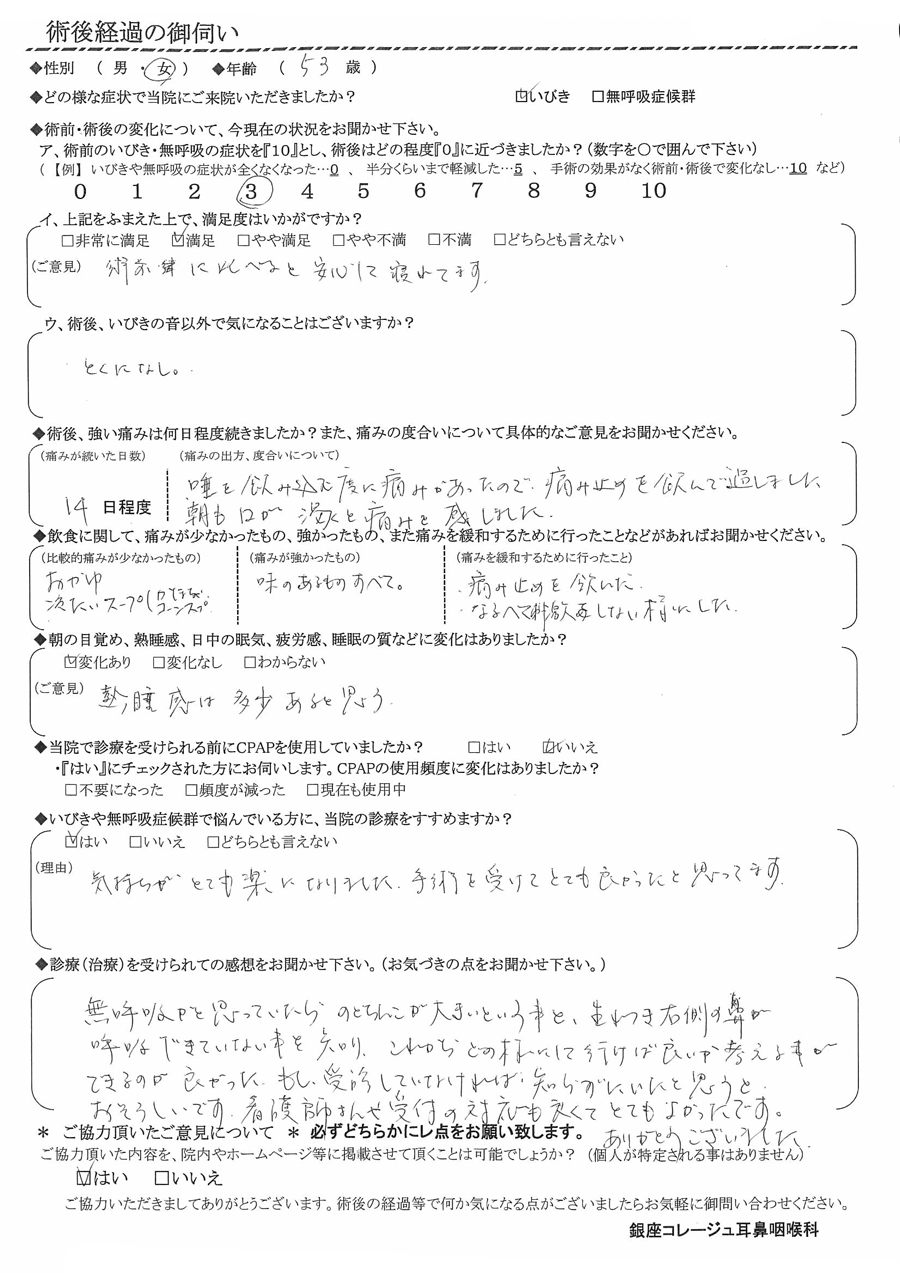 術後経過の御伺い
◆性別 ( 男 ・ 女 ) ◆年齢 ( 53 歳 )
◆どの様な症状で当院にご来院いただきましたか? ☑いびき □無呼吸症候群
◆術前・術後の変化について、今現在の状況をお聞かせ下さい。
ア、術前のいびき・無呼吸の症状を『10』とし、術後はどの程度『0』に近づきましたか?(数字を〇で囲んで下さい)
(【例】いびきや無呼吸の症状が全くなくなった…0 、 半分くらいまで軽減した…5 、 手術の効果がなく術前・術後で変化なし…10 など)
0 1 2 3 4 5 6 7 8 9 10
イ、上記をふまえた上で、満足度はいかがですか?
□非常に満足 ☑満足 □やや満足 □やや不満 □不満 □どちらとも言えない
(ご意見) 術前に比べると安心して寝れてます。
ウ、術後、いびきの音以外で気になることはございますか?
とくになし。
◆術後、強い痛みは何日程度続きましたか?また、痛みの度合いについて具体的なご意見をお聞かせください。
(痛みが続いた日数) (痛みの出方、度合いについて)
14 日程度 唾を飲み込む度に痛みがあったので、痛み止めを飲んで過しました
朝も口が渇くと痛みを感じました。
◆飲食に関して、痛みが少なかったもの、強かったもの、また痛みを緩和するために行ったことなどがあればお聞かせください。
(比較的痛みが少なかったもの) (痛みが強かったもの) (痛みを緩和するために行ったこと)
おかゆ 味のあるものすべて。 ・痛み止めを飲んだ。
冷たいスープ(コーンスープ ・なるべく刺激毎しない様にした。
◆朝の目覚め、熟睡感、日中の眠気、疲労感、睡眠の質などに変化はありましたか?
☑変化あり □変化なし □わからない
(ご意見) 熟睡感は多少あると思う
◆当院で診療を受けられる前にCPAPを使用していましたか? □はい ☑いいえ
・『はい』にチェックされた方にお伺いします。CPAPの使用頻度に変化はありましたか?
□不要になった □頻度が減った □現在も使用中
◆いびきや無呼吸症候群で悩んでいる方に、当院の診療をすすめますか?
☑はい □いいえ □どちらとも言えない
(理由) 気持ちがとても楽になりました。手術を受けてとても良かったと思ってます。
◆診療(治療)を受けられての感想をお聞かせ下さい。(お気づきの点をお聞かせ下さい。)
無呼吸かと思っていたらのどちんこが大きいという事と、生れつき右側の鼻が
呼吸できていない事を知り、これからどの様にして行けば良いか考える事が
できるのが良かった。もし、受診していなければ、知らずにいたと思うと
おそろしいです。看護師さんや受付の対応も良くてとてもよかったです。
ありがとうございました。
* ご協力頂いたご意見について * 必ずどちらかにレ点をお願い致します。
ご協力頂いた内容を、院内やホームページ等に掲載させて頂くことは可能でしょうか? (個人が特定される事はありません)
☑はい □いいえ
ご協力いただきましてありがとうございます。術後の経過等で何か気になる点がございましたらお気軽に御問い合わせください。
銀座コレージュ耳鼻咽喉科